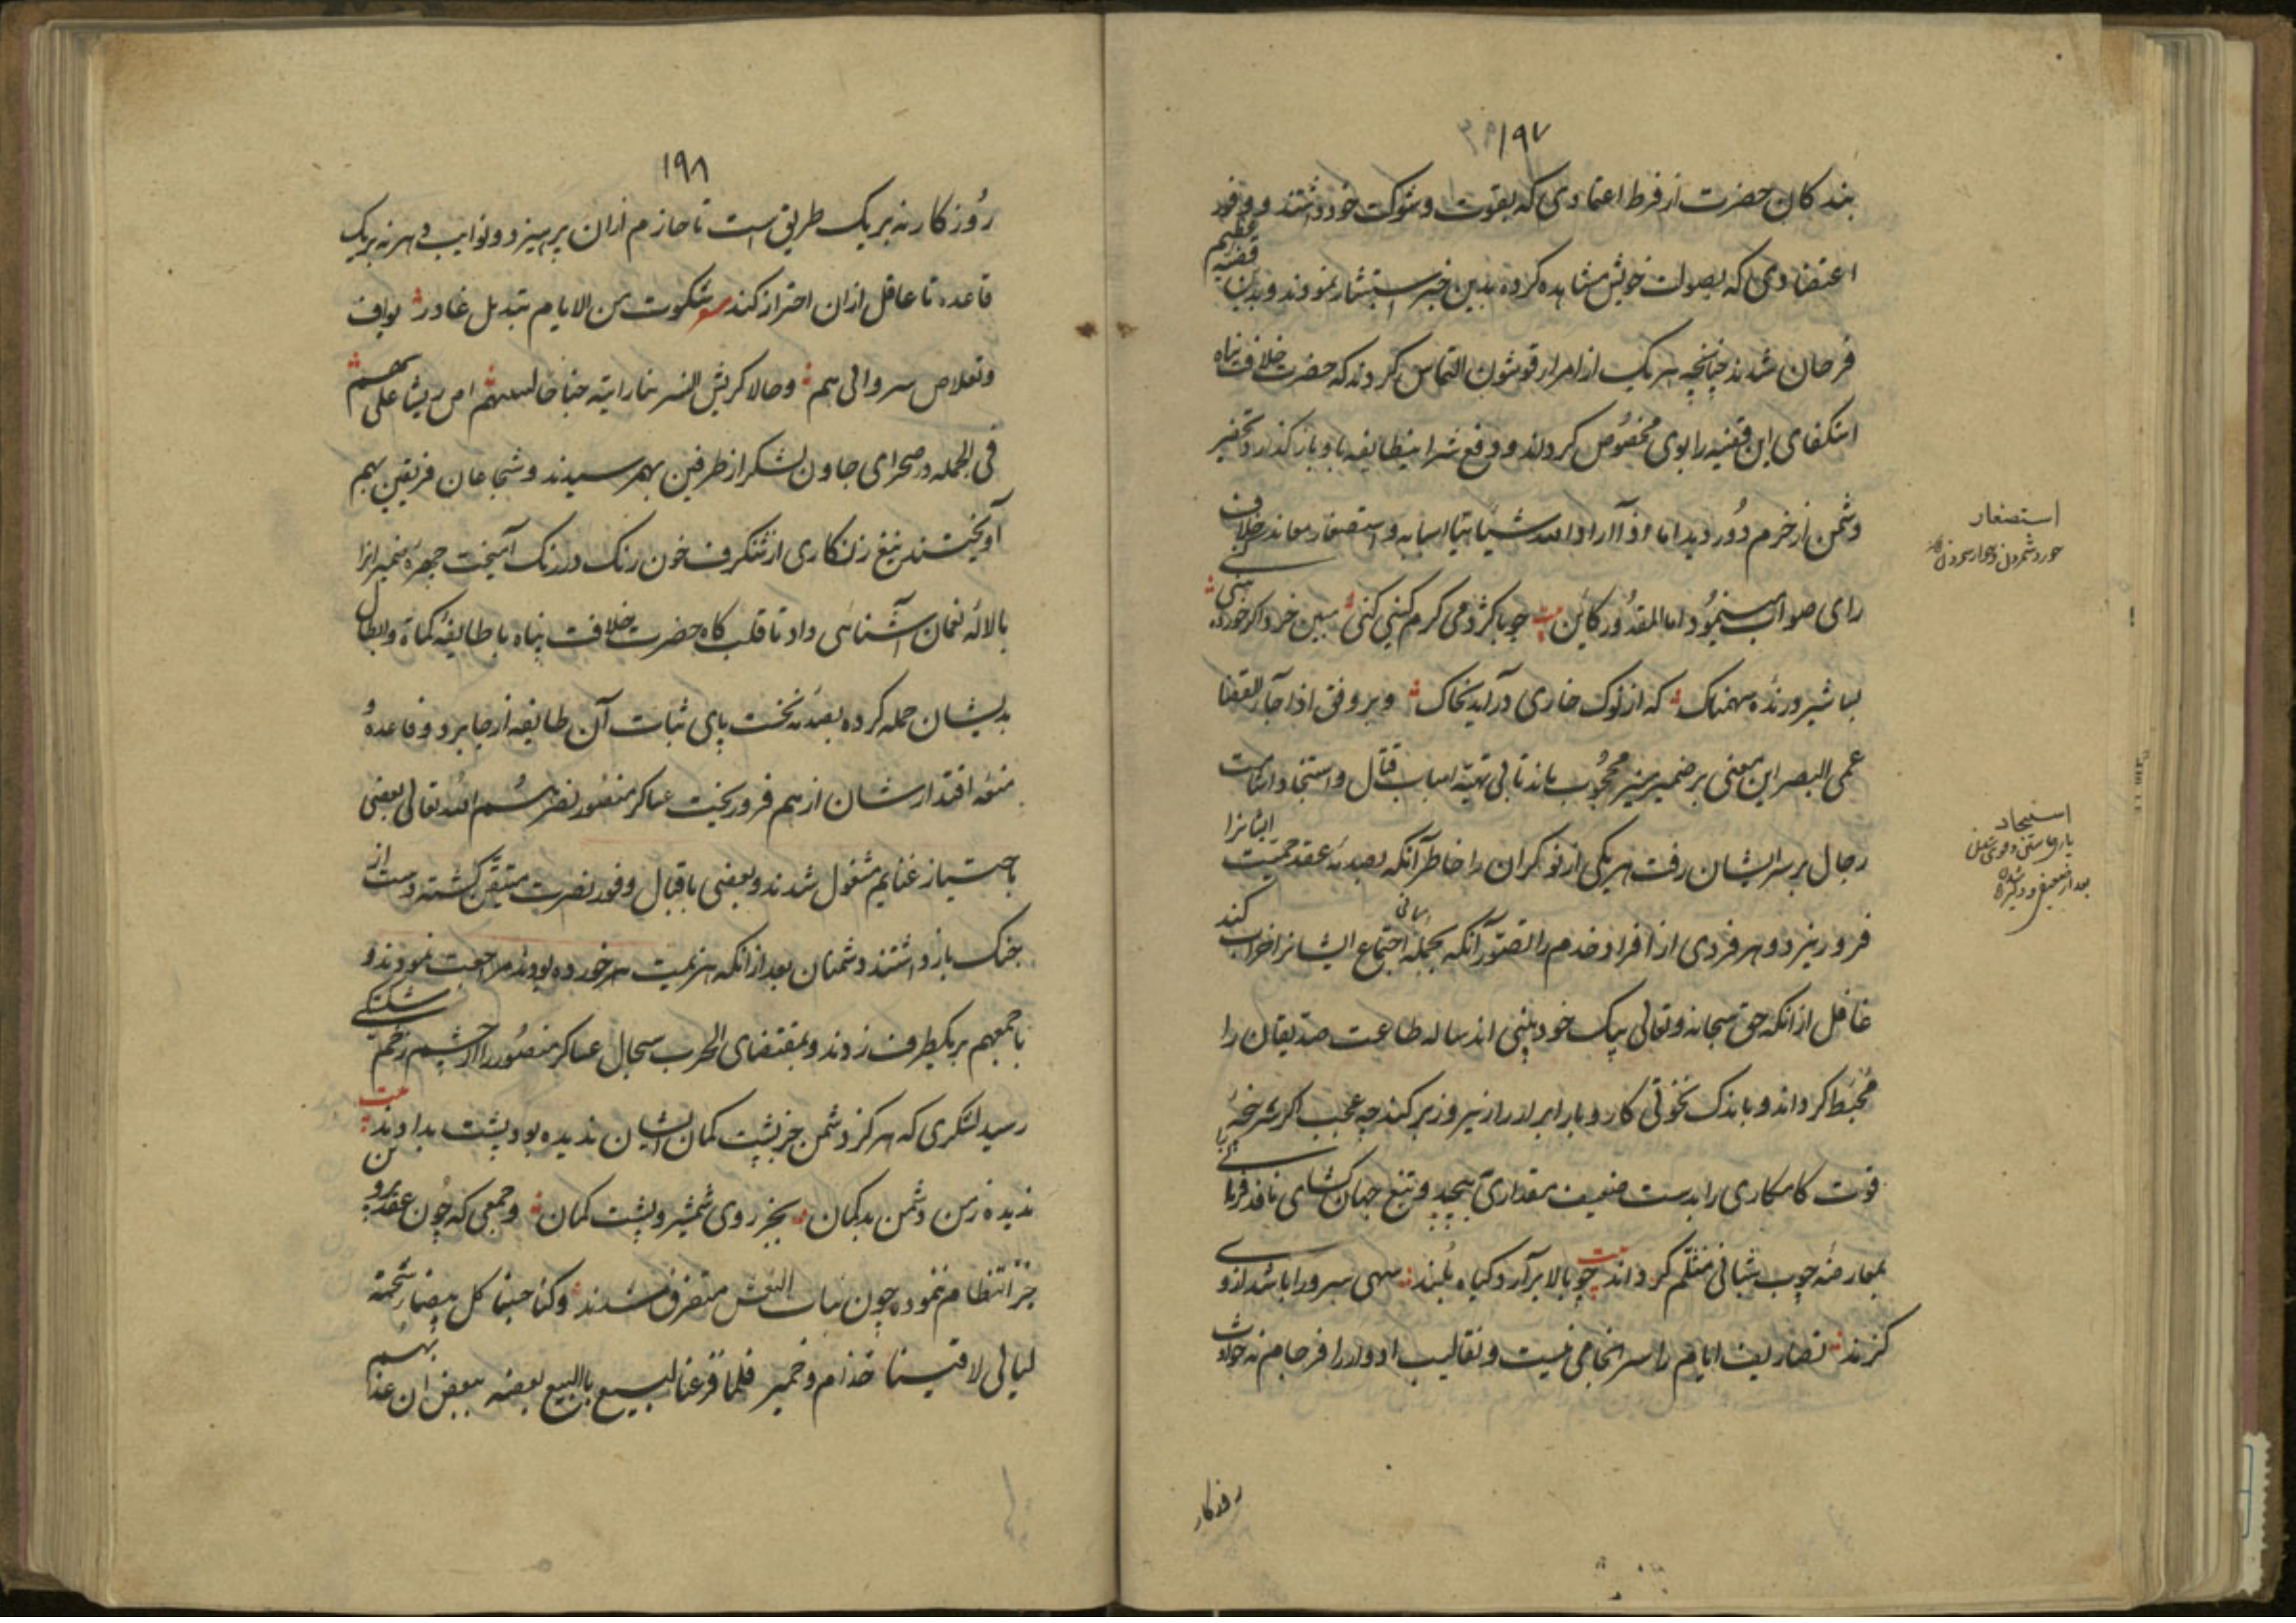 ۱۹۷
بندکان حضرت از فرط اعتمادی که بقوت و شوکت خود داشتند و وفور
اعتضادی که بصولت خویش مشاهده کرده بدین خبر استبشار نمودند و بدین قضیه عظیم
فرحان شدند چنانچه هر یک از امرار قوشون التماس کردند که حضرت خلافت پناه
استکفای این قضیه را بوی مخصوص کرداند و دفع شر اینطایفه باو باز کذارد و تحقیر
دشمن از خرم دور دید اما اذا اراد الله شیئا هیا اسبابه و استصغار معاند خلاف
رای صواب مینمود اما المقدور کاین بیت چو با کژدمی کرم کینی کنی مبین خرد اگر خورده بینی
بسا شیر درنده سهمناک که از نوک خاری درآید بخاک و بر وفق اذا جاء القضا
عمی البصر این معنی بر ضمیر منیر محجوب ماند تا بی تهیه اسباب قتال و استنجاد اثبات
رجال بر سر ایشان رفت هر یکی از نوکران را خاطر آنکه بصدمه عقد جمعیت ایشانرا
فرو ریزد و هر فردی از افراد خدم را تصور آنکه بحمله اجتماع ایشانرا خراب کند
غافل از آنکه حق سبحانه و تعالی بیک خود بینی اند ساله طاعت صدیقان را
محبط کرداند و باندک نخوتی کار و بار ابرار را زیر و زبر کند چه عجب اکر سرپنجه
قوت کامکاری را بدست ضعیف مقداری بپیچد و تیغ جهان کشای نافذ فرمائی را
بمعارضه چوب شبانی منثلم کرداند بیت چو بالا برآرد کیاه بلند سهی سرو را باشد از وی
کزند تصاریف ایام را سرانجامی نیست و تقالیب ادوار را فرجام نه حوادث
روزکار
استصغار
خورد شمردن و خوار شمردن
استنجاد
یاری خواستن و قوی شدن
بعد از ضعیفی و دلیر شدن
۱۹۸
روزکار نه بر یک طریق است تا حازم ازان بپرهیزد و نوایب دهر نه بر یک
قاعده تا عاقل ازان احتراز کند شعر شکوت من الایام تبدیل غادر بواف
و نقلاص سروالی هم وحالا کریش النسر بینا رایته جناحا لسهم امن ریشا علی سهم
فی الجمله در صحرای جاون لشکر از طرفین بهم رسیدند و شجاعان فریقین بهم
آویختند تیغ زنکاری از شنکرف خون رنک در رنک آمیخت چهره ضمیرانرا
با لاله نعمان آشنائی داد تا قلب کاه حضرت خلافت پناه با طایفه کماة و ابطال
بدیشان حمله کرده بصدمه نخست پای ثبات آن طایفه از جا برد و قاعده
منعه اقتدارشان از هم فرو ریخت عساکر منصور نصرهم الله تعالی بعضی
باحتیاز غنایم مشغول شدند و بعضی باقبال و فور نصرت متیقن کشته دست از
جنک باز داشتند دشمنان بعد از آنکه هزیمت خورده بودند مراجعت نمودند و
باجمعهم بر یکطرف زدند و بمقتضای الحرب سجال عساکر منصور را از چشم زخم شکستگی
رسید لشکری که هرکز دشمن جز پشت کمان ایشان ندیده بود پشت بدادند بیت
ندیده زمن دشمن بدکمان بجز روی شمشیر و پشت کمان و جمعی که چون عقد پروین
جز انتظام ننموده چون بنات النعش متفرق شدند وکنا حسبنا کل بیضا شحمة
لیالی لاقینا جذام و حمیر فلما قرعنا النبع بالنبع بعضه ببعض ابت عیدانه